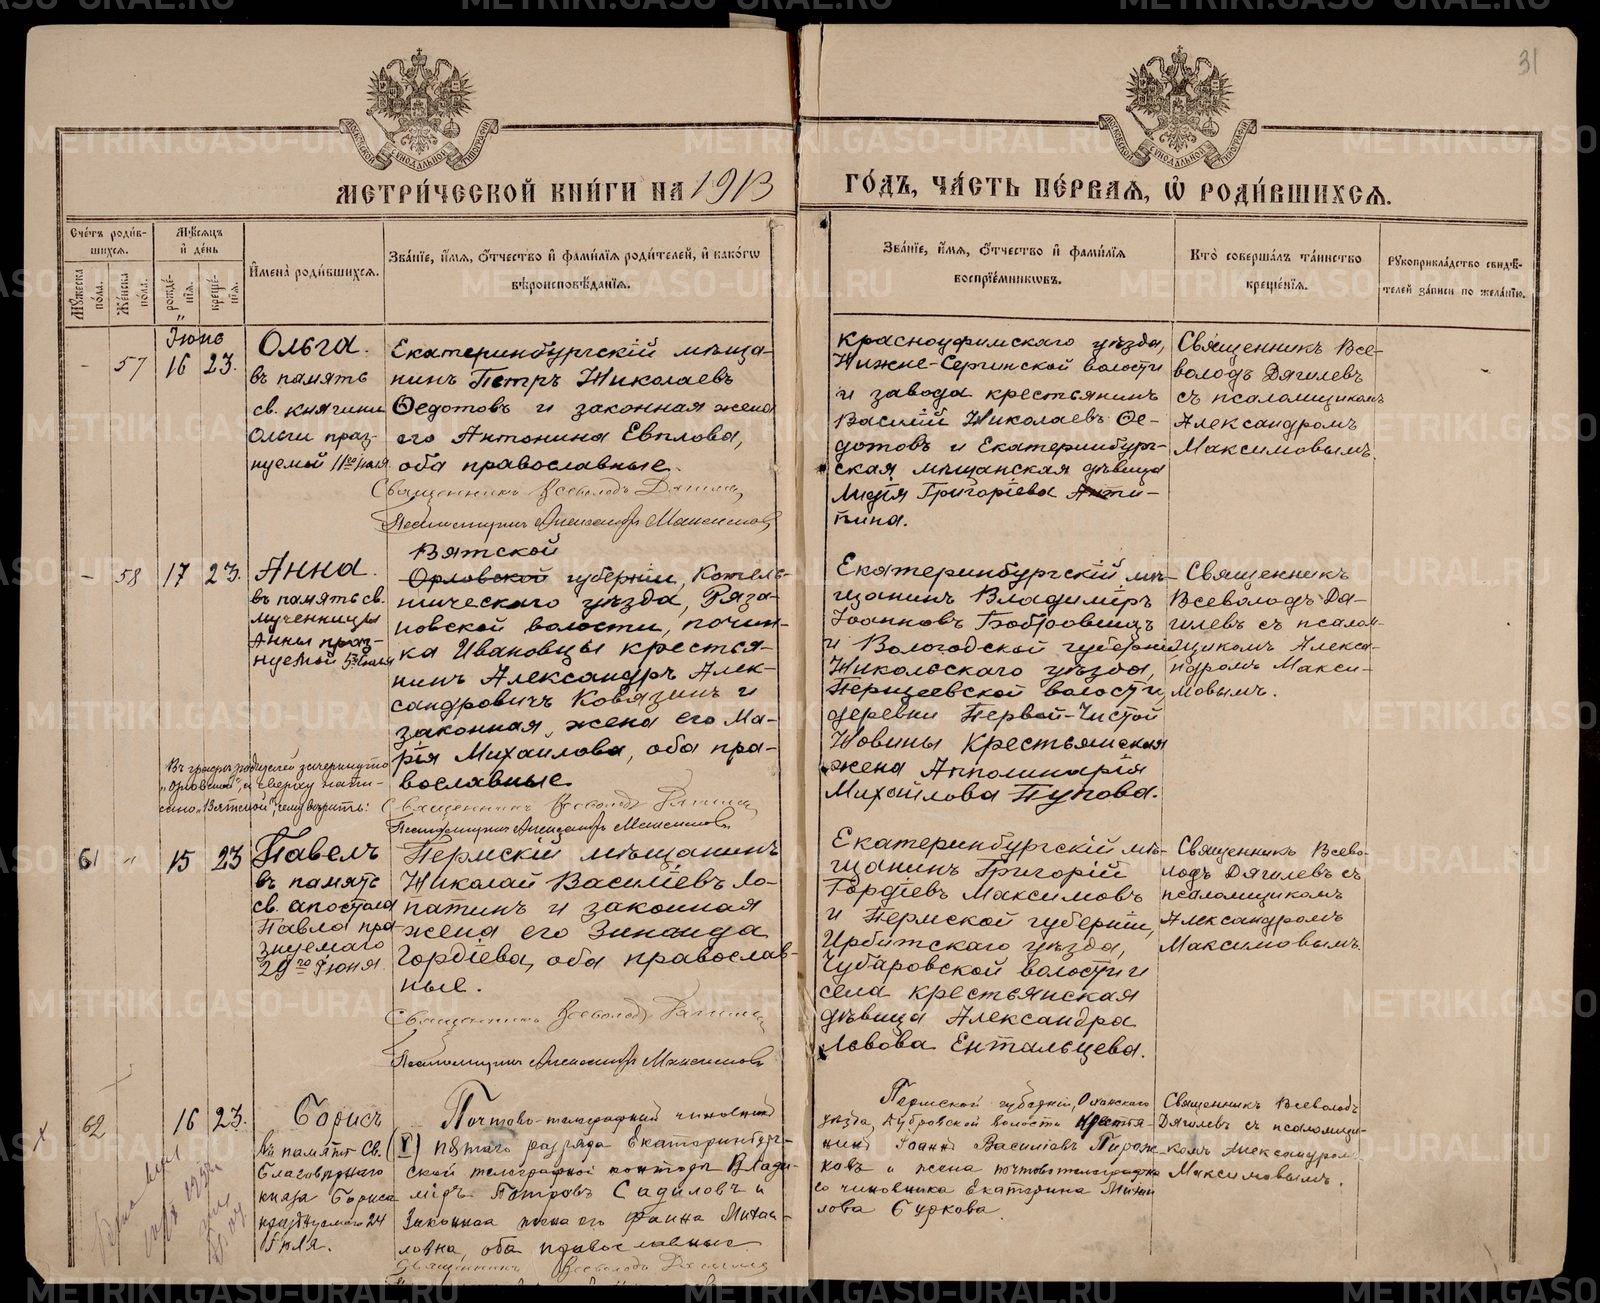 31
МЕТРИ́ЧЕСКОЙ КНИ́ГИ НА 1913
ГО́ДЪ, ЧА́СТЬ ПЕ́РВАЯ, Ѽ РОДИ́ВШИХСЯ.
Сче́тъ роди́вшихся.
Мѣ́сяцъ и҆ де́нь
Мꙋ́жеска по́ла.
Же́нска по́ла.
рожде́нїѧ.
креще́нїѧ.
И҆мена̀ роди́вшихсѧ.
Зва́нїе, и҆́мѧ, ѻ҆́тчество и҆ фами́лїѧ роди́телей, и҆ како́гѡ
вѣ́роисповѣ́данїѧ.
Зва́нїе, и҆́мѧ, ѻ҆́тчество и҆ фами́лїѧ
воспрїе́мникѡвъ.
Кто̀ соверша́лъ та́инство
креще́нїѧ.
Рꙋкоприкла́дство свидѣ́-
телей за́писи по жела́нїю.
Іюнь
- 57 16 23.
Ольга.
въ память
св. княгини
Ольги праз-
нуемой 11го іюля
Екатеринбургскій мѣща-
нинъ Петръ Николаевъ
Ѳедотовъ и законная жена
его Антонина Евплова,
оба православные.
Священникъ Всеволодъ Дягилевъ
Псаломщикъ Александръ Максимовъ
Красноуфимскаго уѣзда,
Нижне-Сергинской волости
и завода крестьянинъ
Василій Николаевъ Ѳе-
дотовъ и Екатеринбург-
ская мѣщанская дѣвица
Лидія Григоріева Анти-
пина.
Священникъ Все-
володъ Дягилевъ
съ псаломщикомъ
Александромъ
Максимовымъ.
- 58 17 23.
Анна.
въ память св.
мученницы
Анны праз-
нуемой 5го іюля
Вятской
Орловской губерніи, Котель-
ническаго уѣзда, Ряза-
новской волости, почин-
ка Ивановцы крестья-
нинъ Александръ Алек-
сандровичъ Ковязинъ и
законная жена его Ма-
рія Михаилова, оба пра-
вославные
Въ графѣ родителей зачеркнуто
„Орловской", а сверху напи-
сано „Вятской", чему вѣрить:
Священникъ Всеволодъ Дягилевъ
Псаломщикъ Александръ Максимовъ
Екатеринбургскій мѣ-
щанинъ Владиміръ
Іоанновъ Бобровицъ
и Вологодской губерніи
Никольскаго уѣзда,
волости,
деревни Первой-Чистой
Новины крестьянская
жена Апполинарія
Михаилова Пупова.
Священникъ
Всеволодъ Дя-
гилевъ съ псалом-
щикомъ Алекса-
ндромъ Макси-
мовымъ.
61 " 15 23
Павелъ
въ память
св. апостола
Павла пра-
знуемаго
29го Іюня
Пермскій мѣщанинъ
Николай Василіевъ Ло-
патинъ и законная
жена его Зинаида
Гордіева, оба православ-
ные.
Священникъ Всеволодъ Дягилевъ
Псаломщикъ Александръ Максимовъ
Екатеринбургскій мѣ-
щанинъ Григорій
Гордіевъ Максимовъ
и Пермской губерніи,
Ирбитскаго уѣзда,
Чубаровской волости и
села крестьянская
дѣвица Александра
Львова Ентальцева.
Священникъ Всево-
лодъ Дягилевъ съ
псаломщикомъ
Александромъ
Максимовымъ.
62 16 23.
Борисъ
въ память Св.
Благовѣрнаго
князя Бориса
празднуемаго 24
Іюля.
Почтово-телеграфный чиновникъ
(V) пятаго разряда Екатеринбург-
ской телеграфной конторы Влади-
міръ Петровъ Садиловъ и
Законная жена его Фаина Михаи-
ловна, оба православные
Священникъ Всеволодъ Дягилевъ
Пермской губерніи, Оханскаго
уѣзда, Дубровской волости крестья-
нинъ Іоаннъ Василіевъ Пирож-
ковъ и жена почтово-телеграфна-
го чиновника Екатерина Михаи-
лова Суркова.
Священникъ Всеволодъ
Дягилевъ съ псаломщи-
комъ Александромъ
Максимовымъ.
METRIKI.GASO-URAL.RU